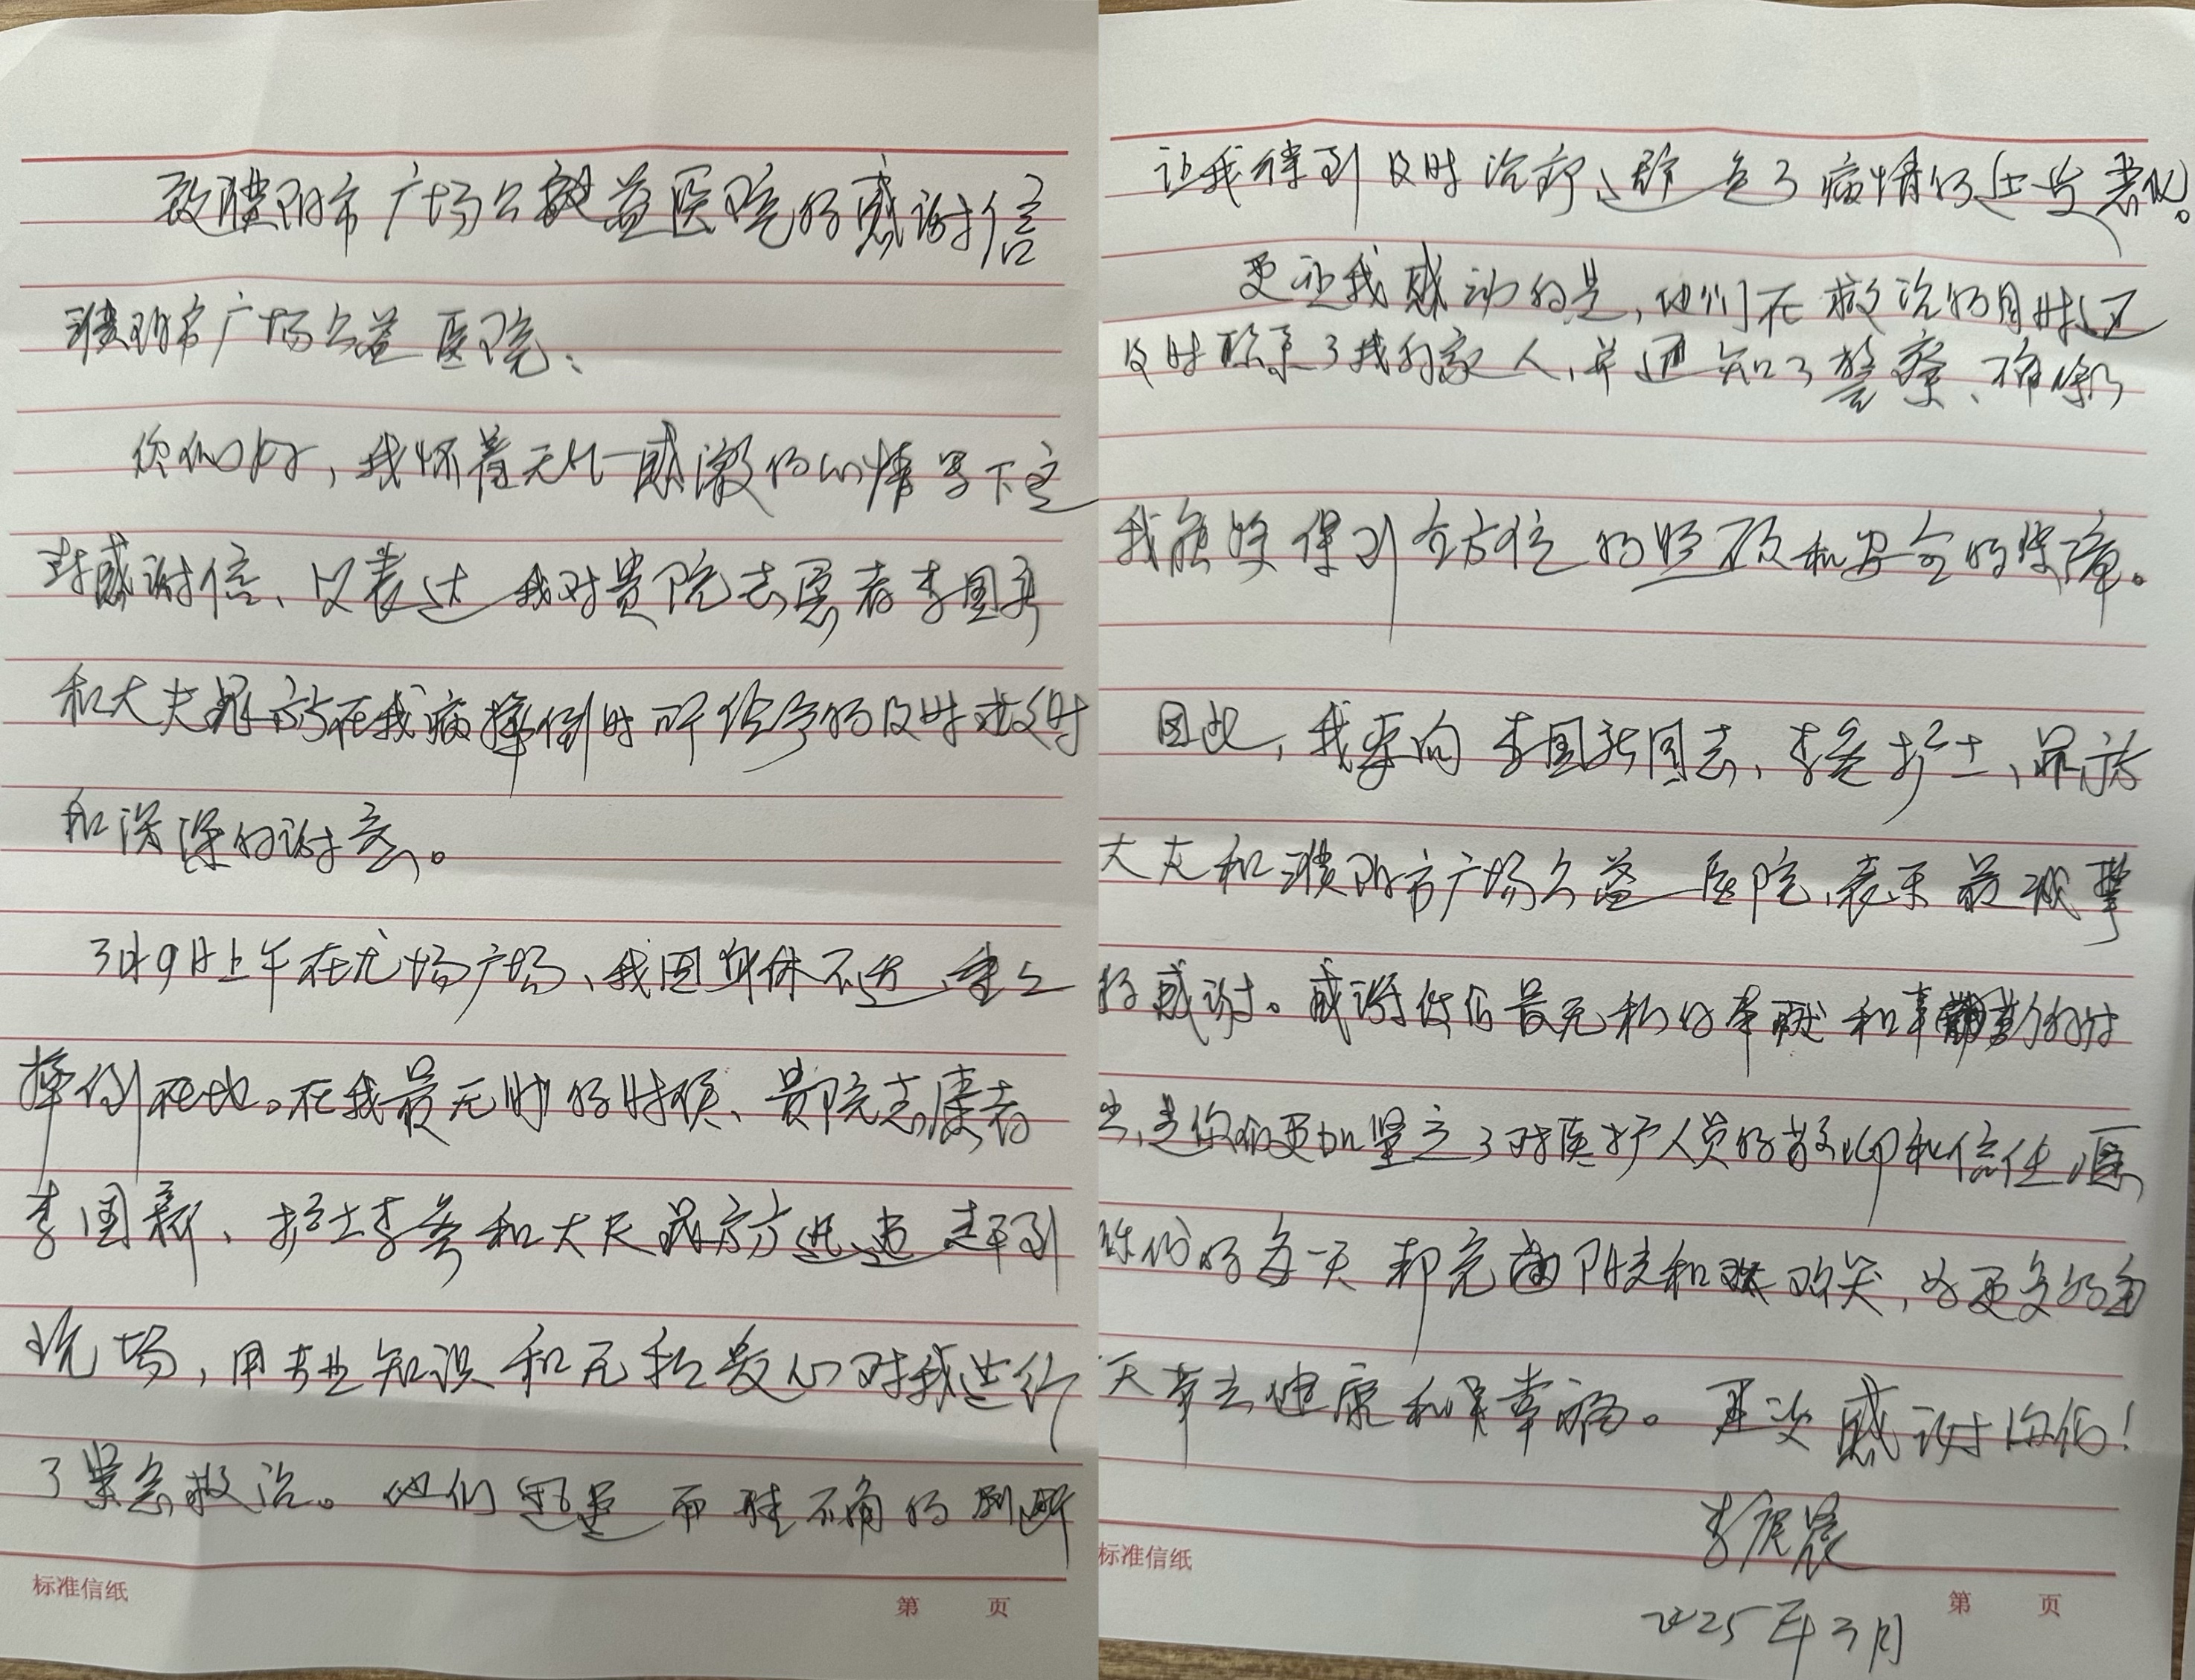 致濮阳市广场公益医院的感谢信
濮阳市广场公益医院:
你们好,我怀着无比感激的心情写下这
封感谢信、以表达我对贵院志愿者李国新
和大夫 在我病摔倒时所给予的及时救助
和深深的谢意。
3月9日上午在龙场广场、我因身体不适、
摔倒在地。在我最无助的时候、贵院志愿者
李国新、护士李 和大夫 迅速赶到
现场,用专业知识和无私爱心对我进行
了紧急救治。他们迅速而准确的判断
标准信纸
第 页
让我得到及时治疗、避免了病情的进步恶化。
更让我感动的是,他们在救治的同时还
及时联系了我的家人,并通知了警察、确保了
我能够得到全方位的照顾和安全的保障。
因此,我要向李国新同志、李 护士、
大夫和濮阳市广场公益医院、表示最诚挚
的感谢。感谢你们最无私的奉献和辛勤的付
出,是你们更加坚定了对医护人员的敬仰和信任、愿
你们的每一天都充满阳光和欢笑,为更多的
天带去健康和幸福。再次感谢你们!
李庆晨
2025年3月
标准信纸
第 页